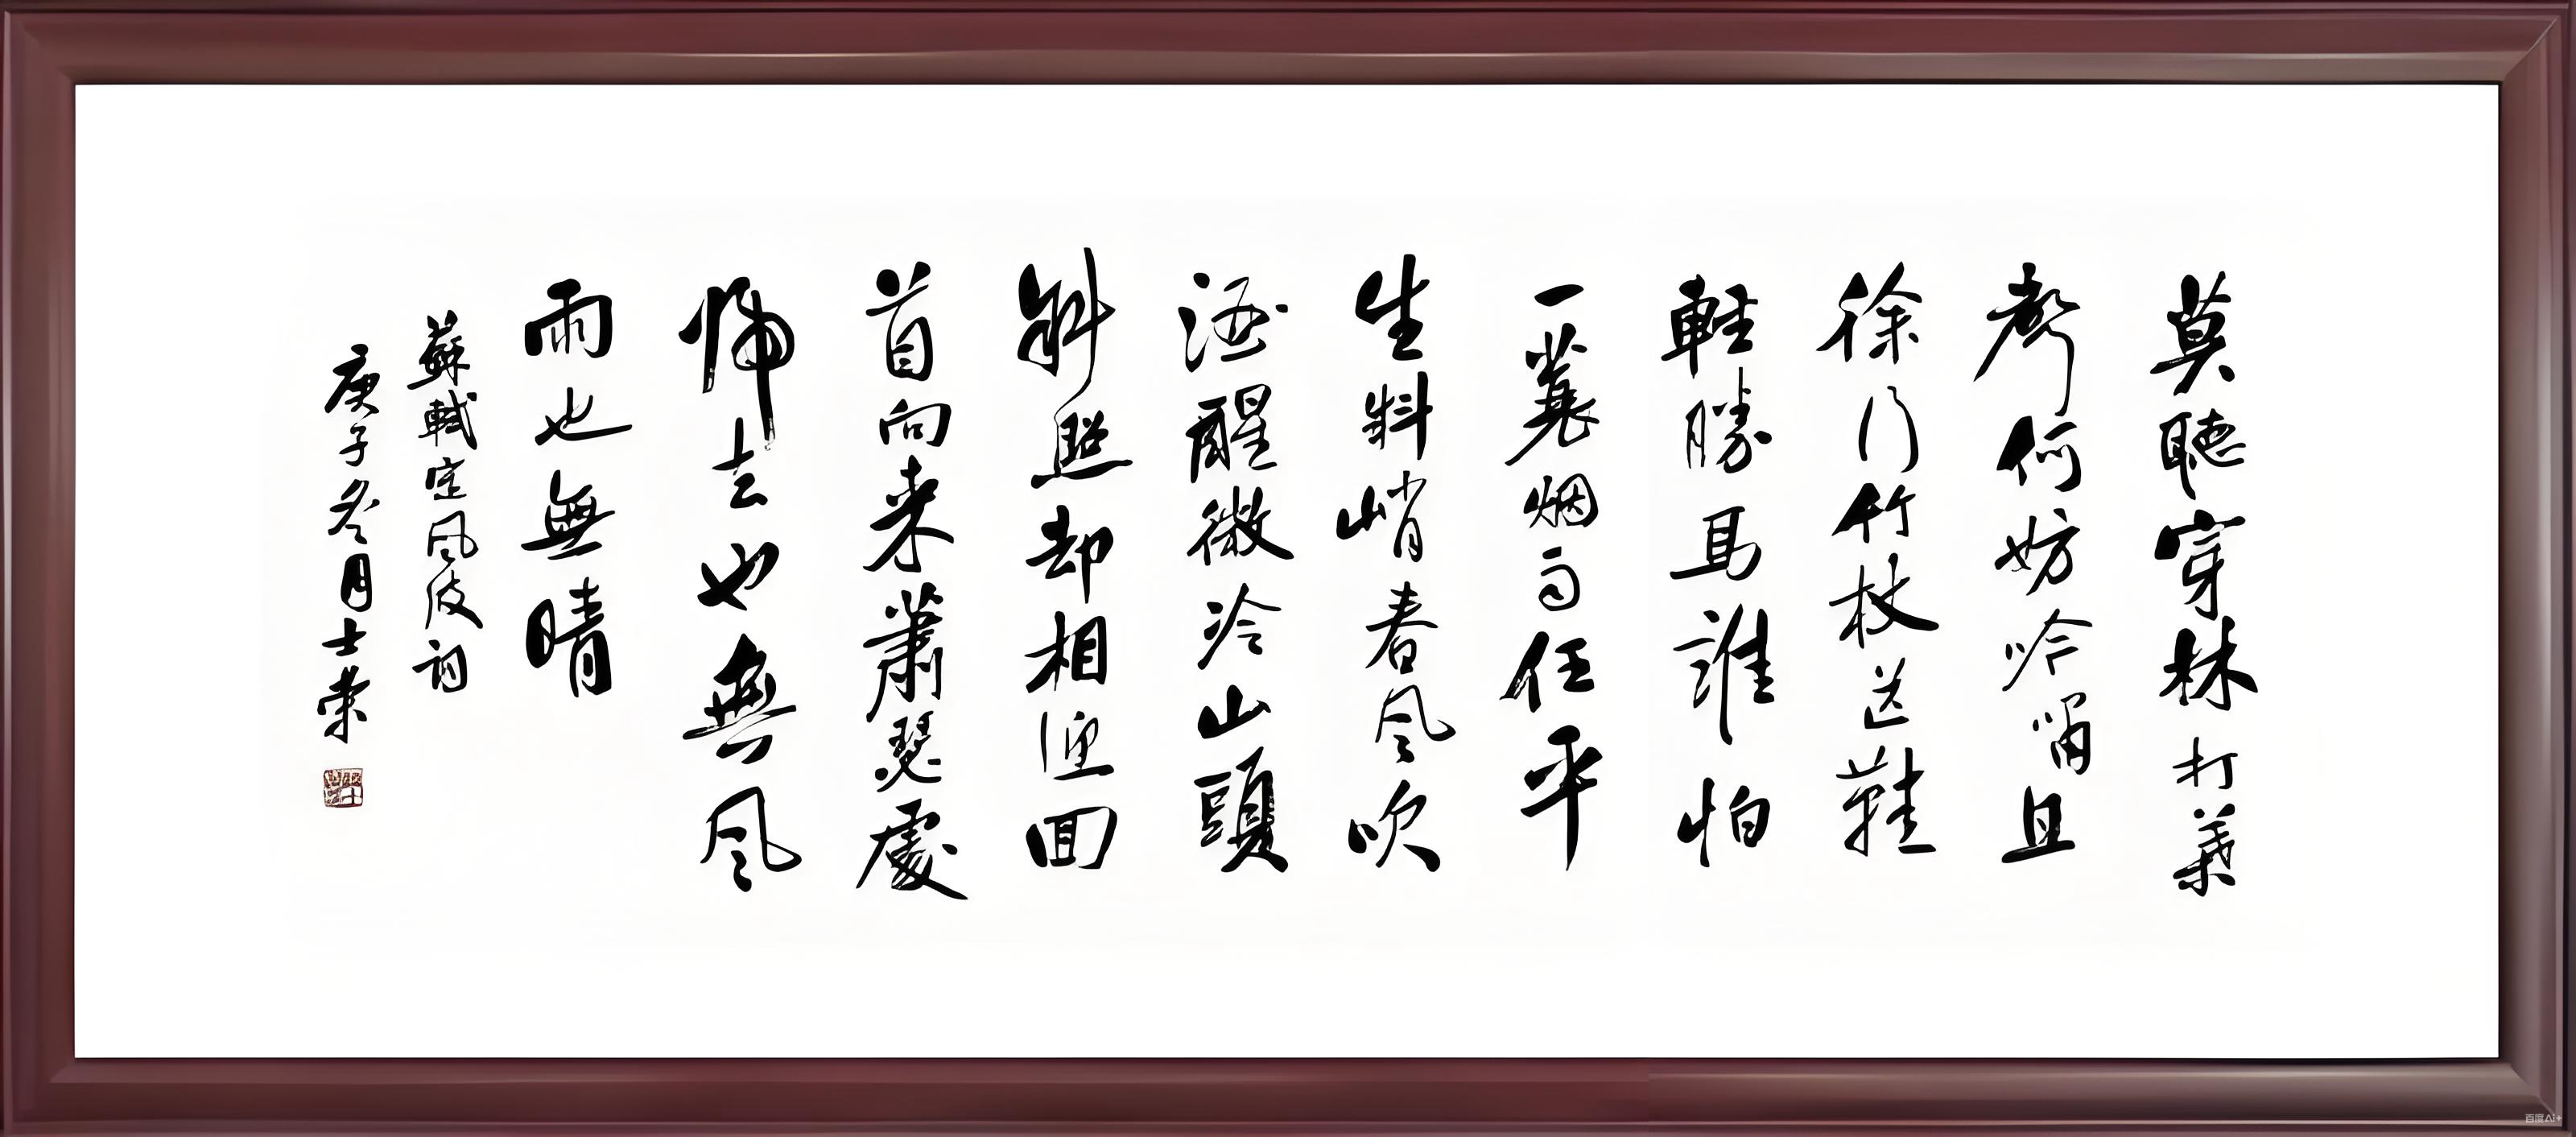 莫聽穿林打葉
聲何妨吟嘯且
徐行竹杖芒鞋
輕勝馬誰怕
一蓑烟雨任平
生料峭春風吹
酒醒微冷山頭
斜照却相迎回
首向来蕭瑟處
歸去也無風
雨也無晴
蘇軾定風波詞
庚子冬月士荣
百度AI+